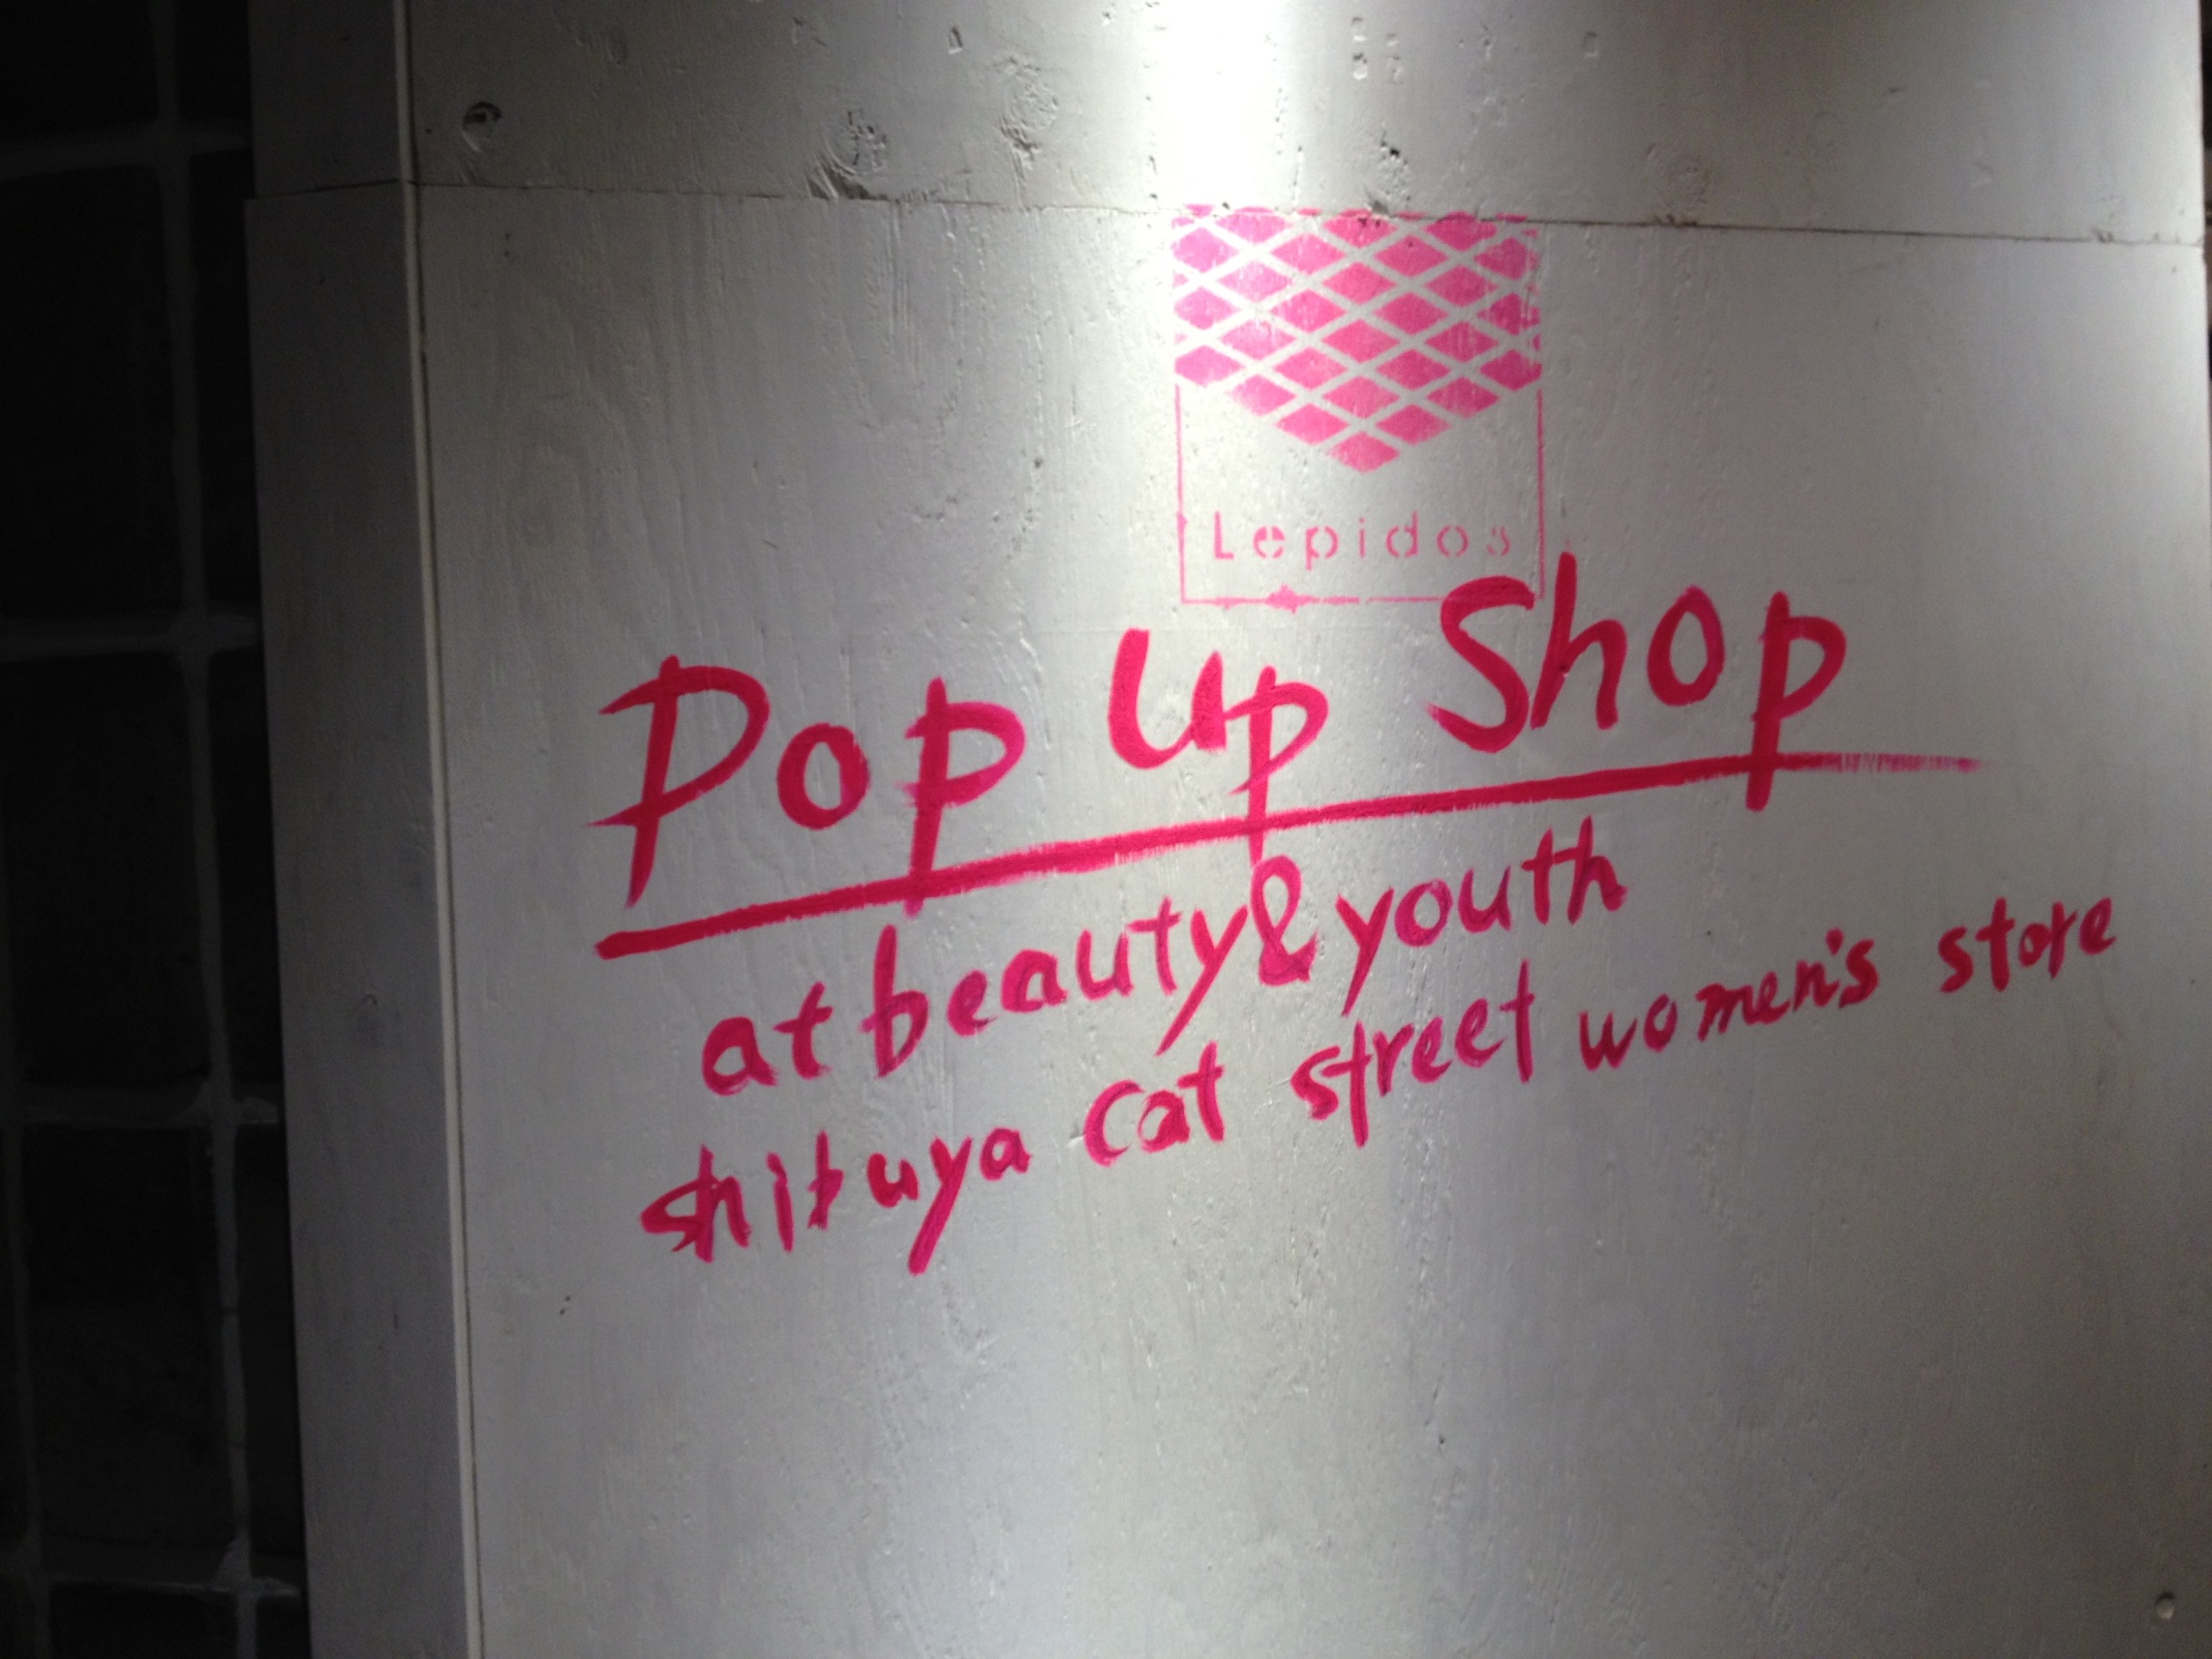 Lepidos
Pop Up Shop
at beauty&youth
shibuya cat street women's store